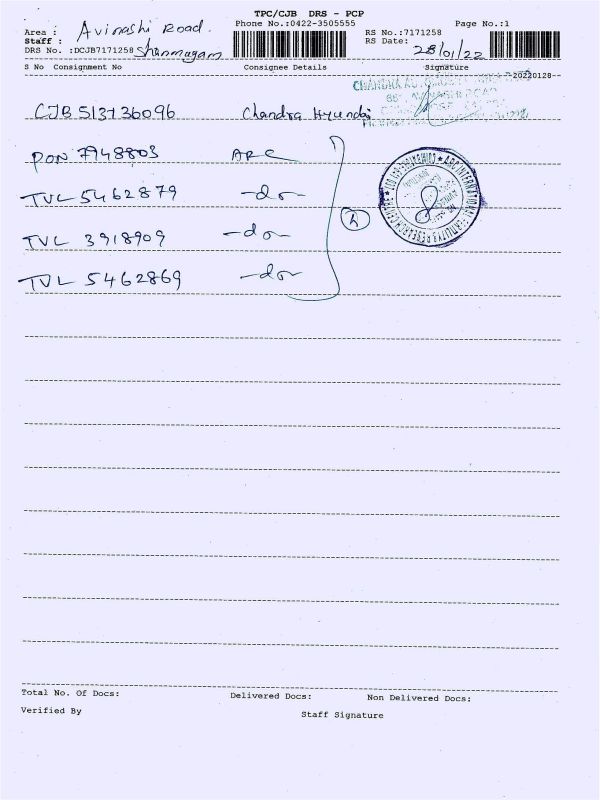 TPC/CJB DRS - PCP
Phone No.:0422-3505555
Page No.:1
Area : Avinashi Road.
Staff : Shanmugam
DRS No. :DCJB7171258
RS No.:7171258
RS Date: 28/01/22
S No Consignment No Consignee Details Signature
20220128
CJB 513736096 Chandra Hyundai
PON 7948803 ARC
TVL 5462879 -do-
TVL 3918909 -do-
TVL 5462869 -do-
Total No. Of Docs: Delivered Docs: Non Delivered Docs:
Verified By Staff Signature